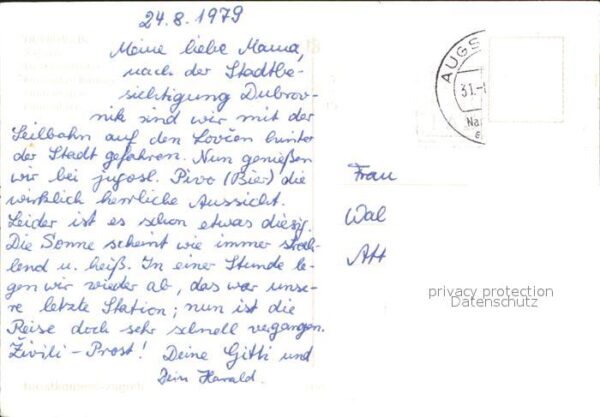 24.8.1979
Meine liebe Mama,
nach der Stadtbe-
sichtigung Dubrov-
nik sind wir mit der
Seilbahn auf den Lovćen hinter
der Stadt gefahren. Nun genießen
wir bei jugosl. Pivo (Bier) die
wirklich herrliche Aussicht.
Leider ist es schon etwas diesig.
Die Sonne scheint wie immer strah-
lend u. heiß. In einer Stunde le-
gen wir wieder ab, das war unse-
re letzte Station; nun ist die
Reise doch sehr schnell vergangen.
Živili - Prost! Deine Gitti und
Dein Harald.
Frau
Wal
Att
AUGS
31.-
privacy protection
Datenschutz